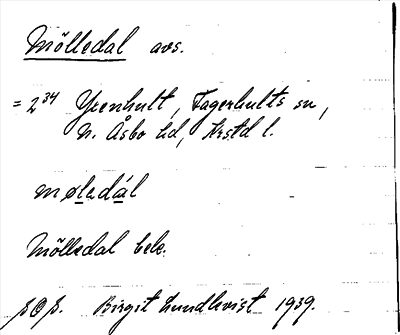 Mölledal avs.
= 2³⁴ Yxenhult, Fagerhults sn,
N. Åsbo hd, Krstd l.
møledál
Mölledal bek.
Birgit Lundkvist 1939.